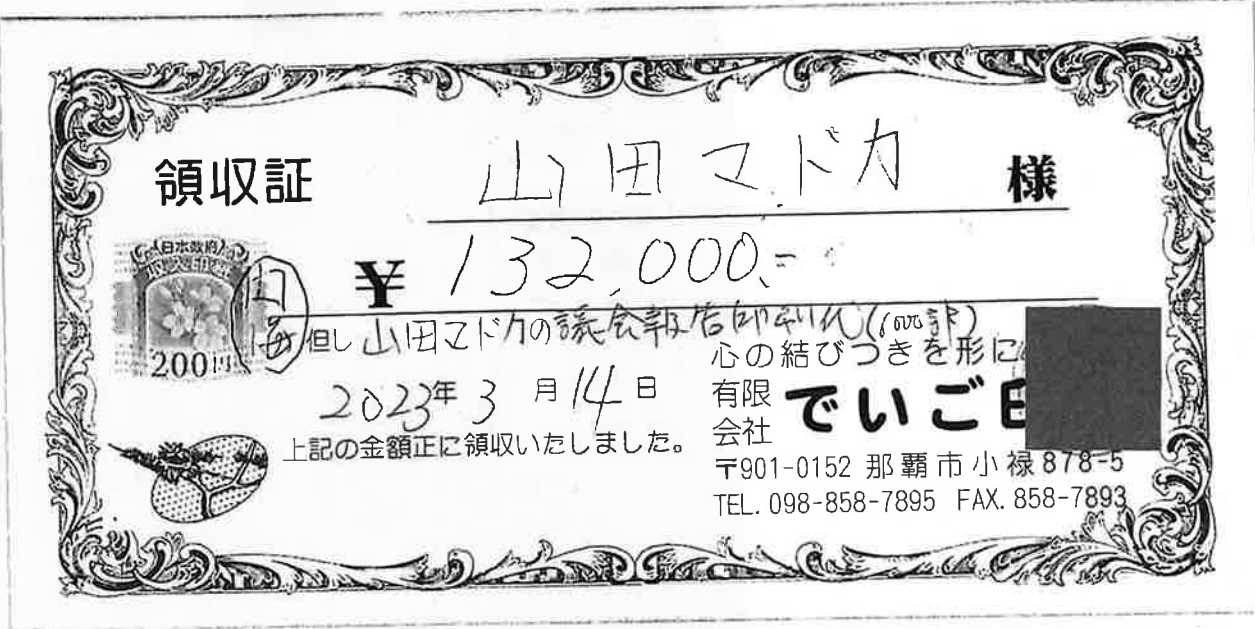 領収証 山田マドカ 様
日本政府
収入印紙
200円
¥132,000.-
但し 山田マドカの議会報告印刷代
2023年3月14日
上記の金額正に領収いたしました。
心の結びつきを形に
有限会社 でいご
〒901-0152 那覇市小禄878-5
TEL. 098-858-7895 FAX. 858-7893